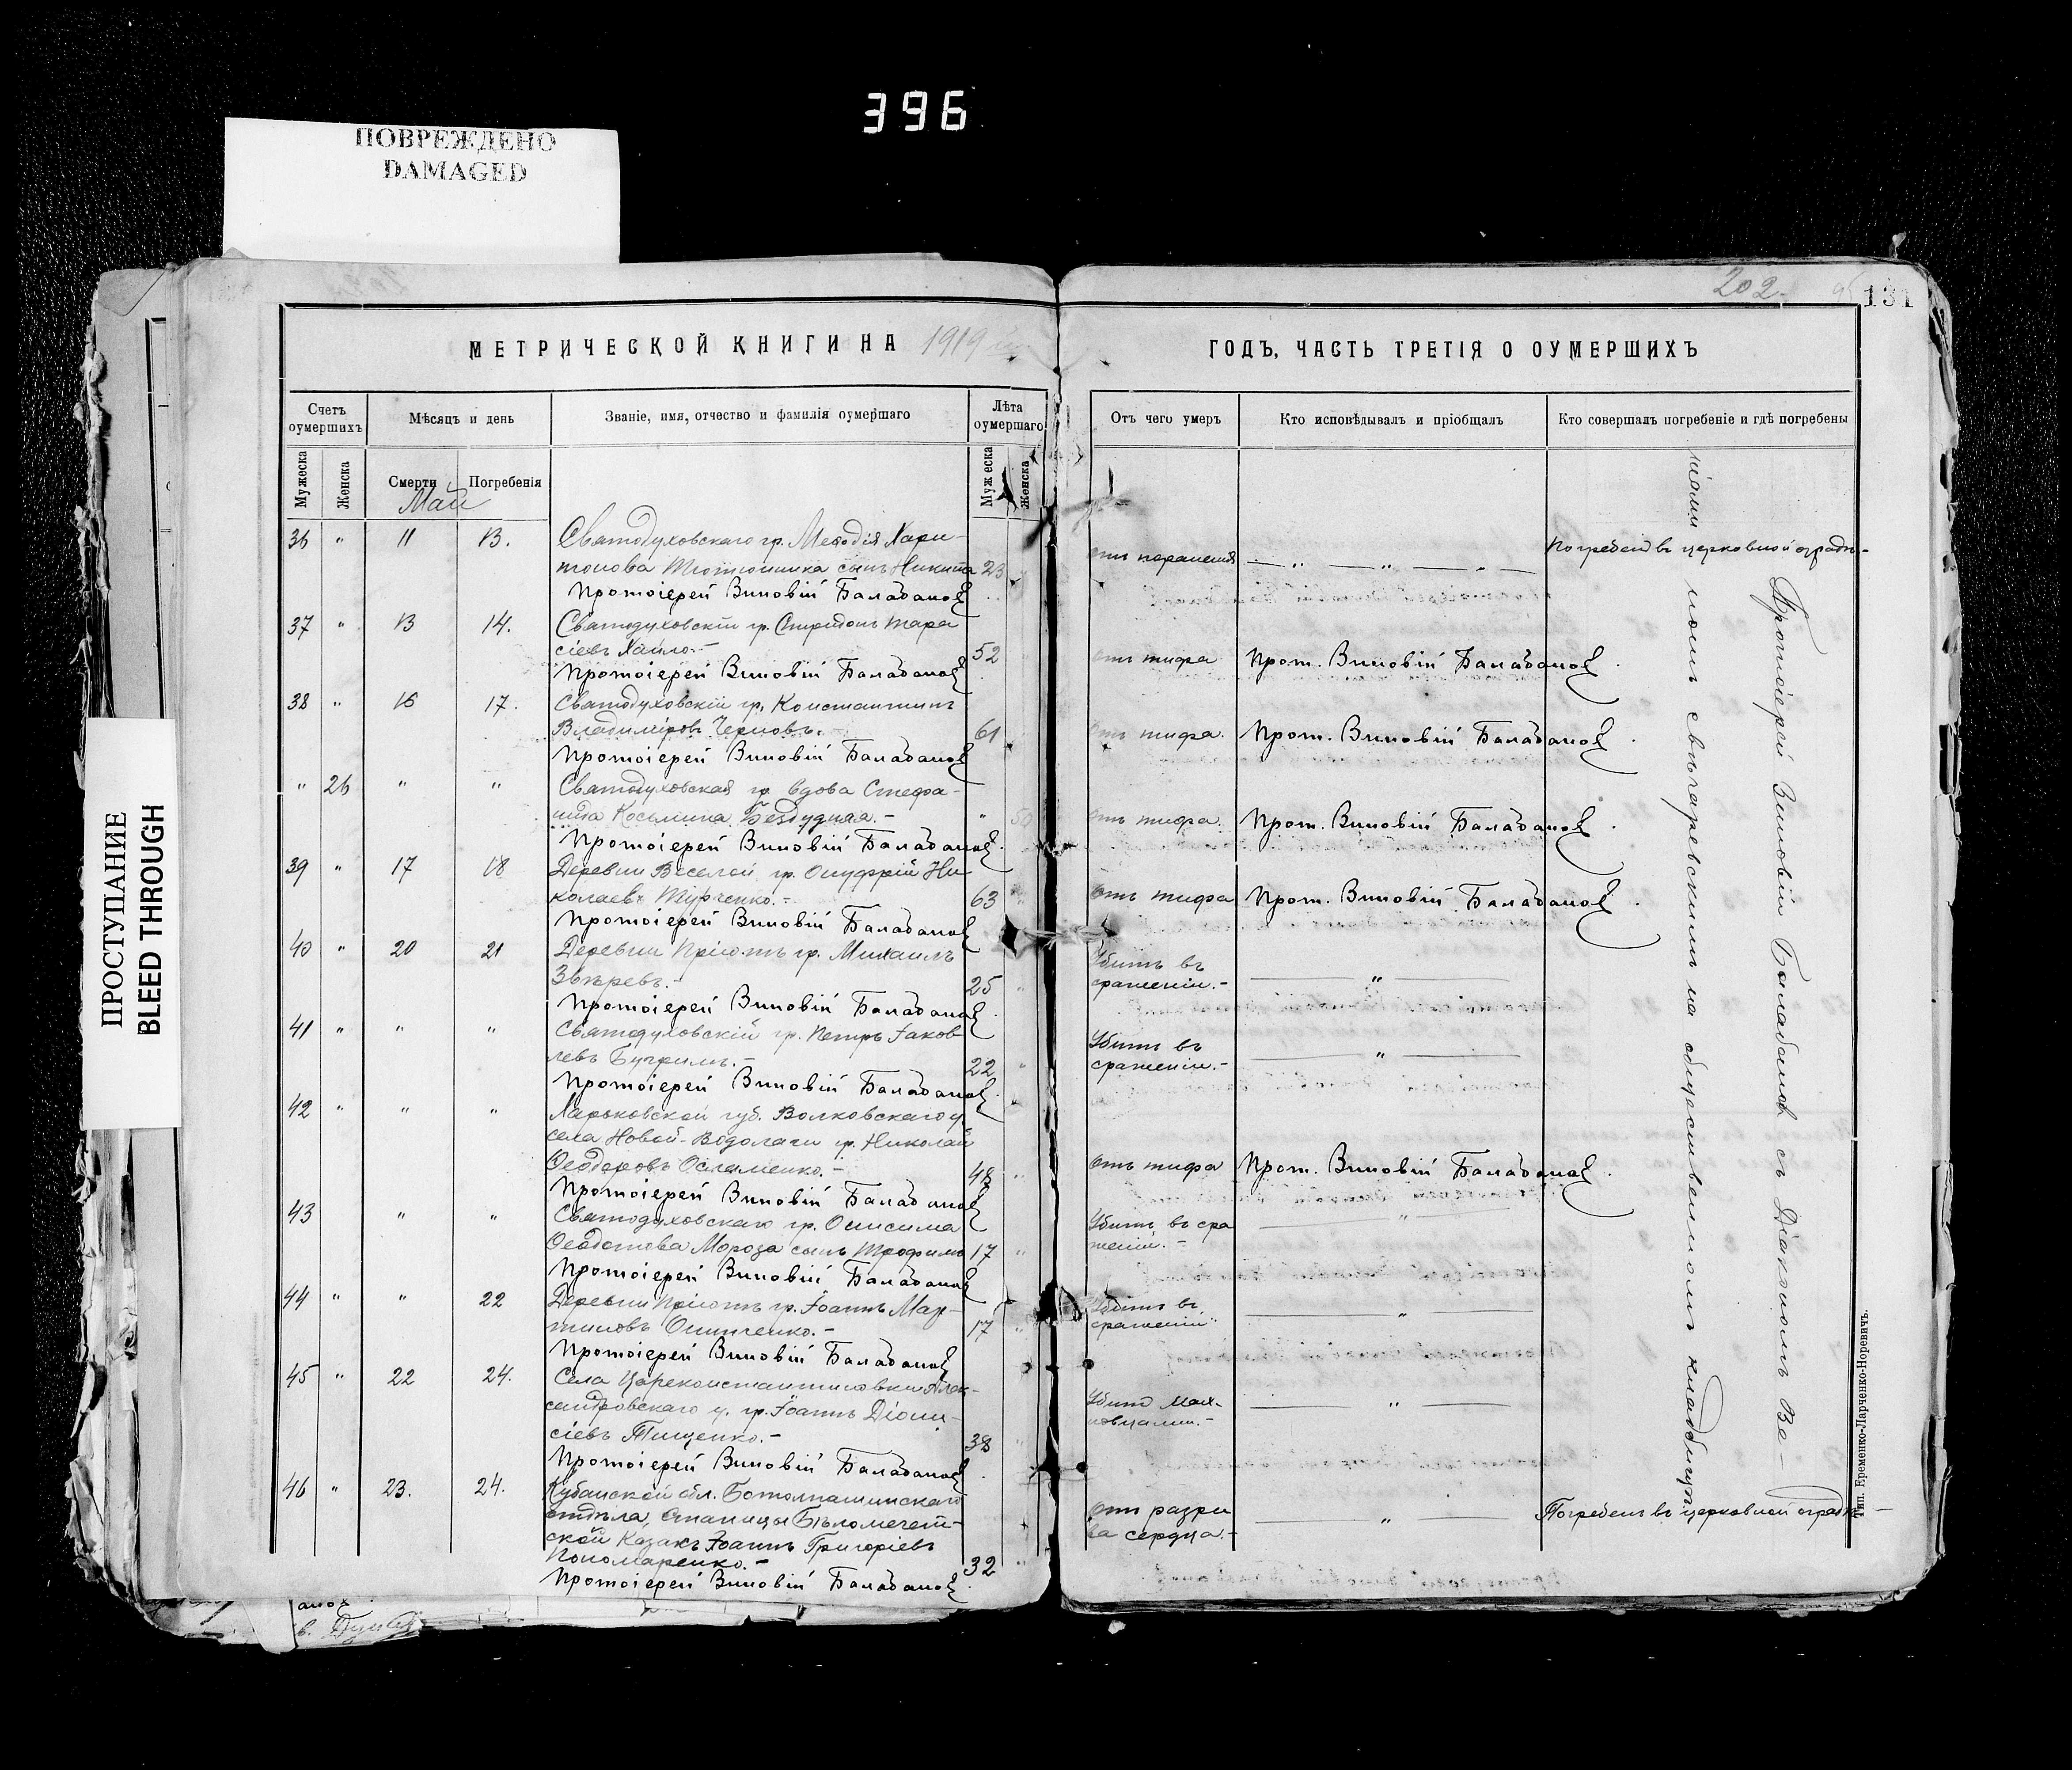 396
ПОВРЕЖДЕНО
DAMAGED
ПРОСТУПАНИЕ
BLEED THROUGH
202
131
МЕТРИЧЕСКОЙ КНИГИ НА 1919
ГОДЪ, ЧАСТЬ ТРЕТІЯ О ОУМЕРШИХЪ
Счетъ оумершихъ
Мѣсяцъ и день
Званіе, имя, отчество и фамилія оумершаго
Лѣта оумершаго
Отъ чего умеръ
Кто исповѣдывалъ и пріобщалъ
Кто совершалъ погребеніе и гдѣ погребены
Мужеска
Женска
Смерти
Погребенія
Мужеска
Женска
Май
36 " 11 13. Святодуховскаго гр. Меѳодія Хари-
тонова сынъ Никита 23 " — " — " —
Погребенъ въ церковной оградѣ-
Протоіерей Зиновій Балабановъ
37 " 13 14. Святодуховскій гр. Спиридонъ Тара
сіевъ Хайло.- 52 отъ тифа Прот. Зиновій Балабановъ
Протоіерей Зиновій Балабановъ
38 " 16 17. Святодуховскій гр. Константинъ
Владиміровъ Черновъ.- 61 отъ тифа. Прот. Зиновій Балабановъ
Протоіерей Зиновій Балабановъ
" 26 " " Святодуховская гр. вдова Стефа-
нида Косьмина Бездудная.- " отъ тифа. Прот. Зиновій Балабановъ
Протоіерей Зиновій Балабановъ
39 " 17 18 Деревни Веселой гр. Онуфрій Ни
колаевъ Турченко.- 63 отъ тифа Прот. Зиновій Балабановъ
Протоіерей Зиновій Балабановъ
40 " 20 21 Деревни Пріютъ гр. Михаилъ Убитъ въ
Звѣревъ.- 25 сраженіи.- — " —
Протоіерей Зиновій Балабановъ
41 " " " Святодуховскій гр. Петръ Іаков Убитъ въ
левъ 22 сраженіи.- — " —
Протоіерей Зиновій Балабановъ
42 " " " Харьковской губ. Волковскаго у.
села Новой-Водолаги гр. Николай
Ѳеодоровъ 48 отъ тифа Прот. Зиновій Балабановъ
Протоіерей Зиновій Балабановъ
43 " " Святодуховскаго гр. Онисима Убитъ въ сра — " —
Ѳеодотова Мороза сынъ Трофимъ 17 женіи.-
Протоіерей Зиновій Балабановъ
44 " " 22 Деревни Пріютъ гр. Іоаннъ Мар- Убитъ въ
тиновъ 17 сраженіи — " —
Протоіерей Зиновій Балабановъ
45 " 22 24. Села Цареконстантиновки Алек-
сандровскаго у. гр. Іоаннъ Діони- Убитъ мах-
сіевъ Тищенко.- 38 новцами.- — " —
Протоіерей Зиновій Балабановъ
46 " 23. 24. Кубанской обл. Баталпашинскаго
отдѣла, станицы Бѣломечет- отъ разры — " — Погребенъ въ церковной оградѣ
ской Казакъ Іоаннъ Григоріевъ ва сердца.-
Пономаренко.- 32
Протоіерей Зиновій Балабановъ
Протоіерей Зиновій Балабановъ съ Діакономъ Ве-
ніаминомъ на общественномъ кладбищѣ.
Тип. Еременко-Ларченко-Норевичъ.